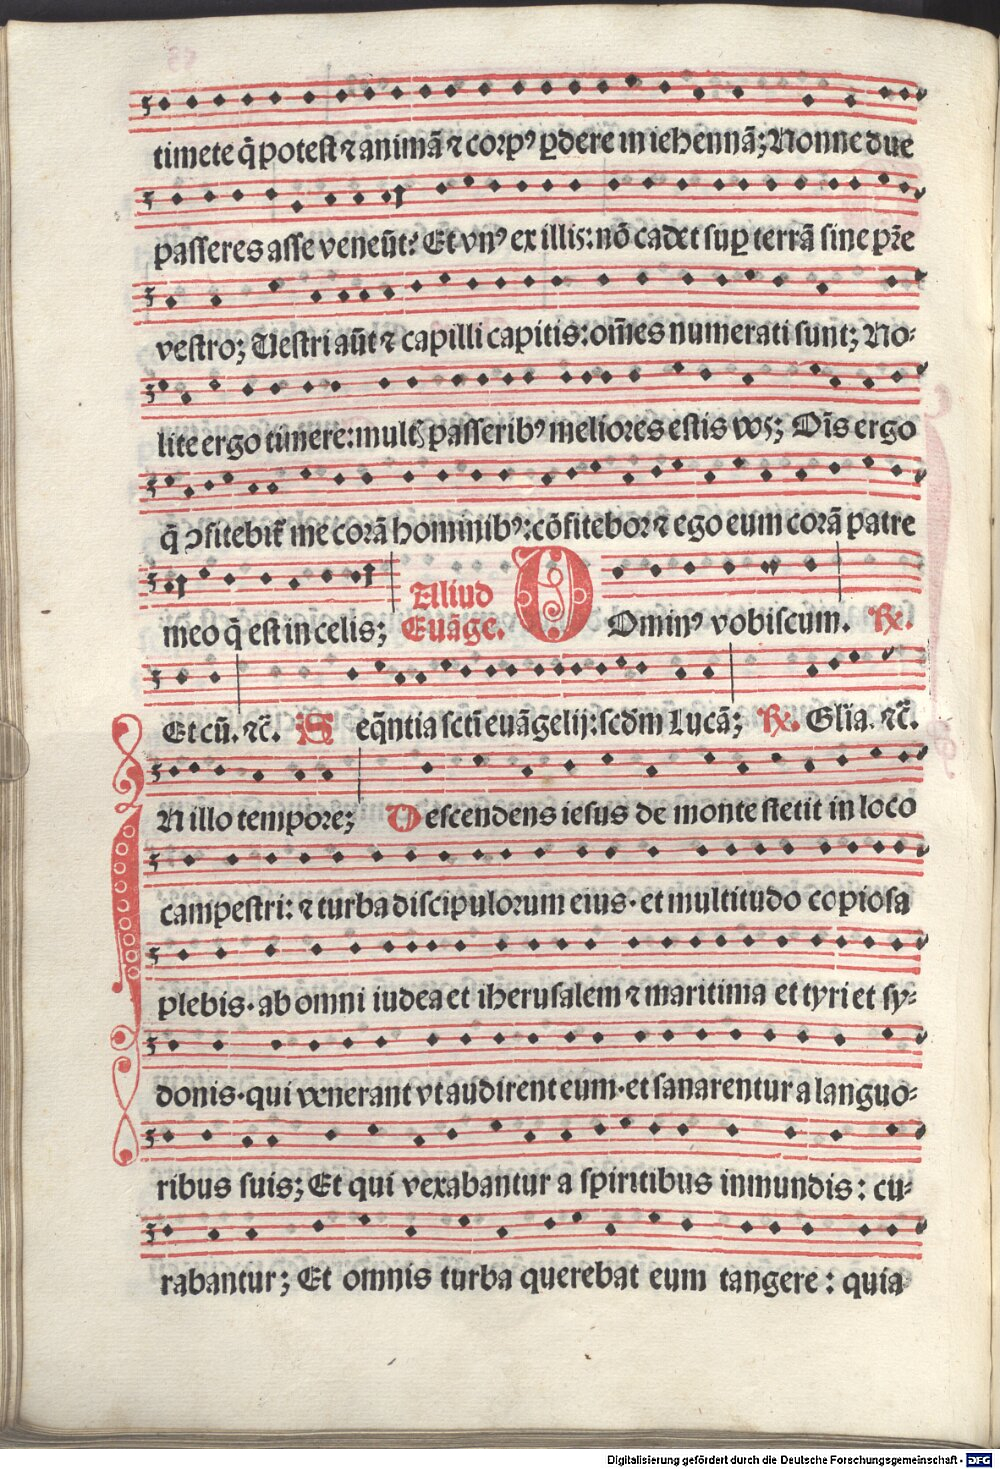 timete q̃ potest ⁊ animã ⁊ corpꝰ ꝑdere in iehennã; Nonne due
passeres asse veneũt? Et vnꝰ ex illis: nõ cadet suꝑ terrã sine pr̃e
vestro; Uestri aũt ⁊ capilli capitis: om̃es numerati sunt; No-
lite ergo timere: mult; passeribꝰ meliores estis vos; Oĩs ergo
q̃ ꝯfitebit᷑ me corã hominibꝰ: cõfitebor ⁊ ego eum corã patre
meo q̃ est in celis; Aliud Euãge. D Ominꝰ vobiscum. ℟.
Et cũ. ⁊c̃. S eq̃ntia sc̃ti euãgelij: scd̃m Lucã; ℟. Gl̃ia. ⁊c̃.
I N illo tempore; D escendens iesus de monte stetit in loco
campestri: ⁊ turba discipulorum eius. et multitudo copiosa
plebis. ab omni iudea et iherusalem ⁊ maritima et tyri et sy-
donis. qui venerant vt audirent eum. et sanarentur a languo-
ribus suis; Et qui vexabantur a spiritibus inmundis: cu-
rabantur; Et omnis turba querebat eum tangere: quia
Digitalisierung gefördert durch die Deutsche Forschungsgemeinschaft - DFG